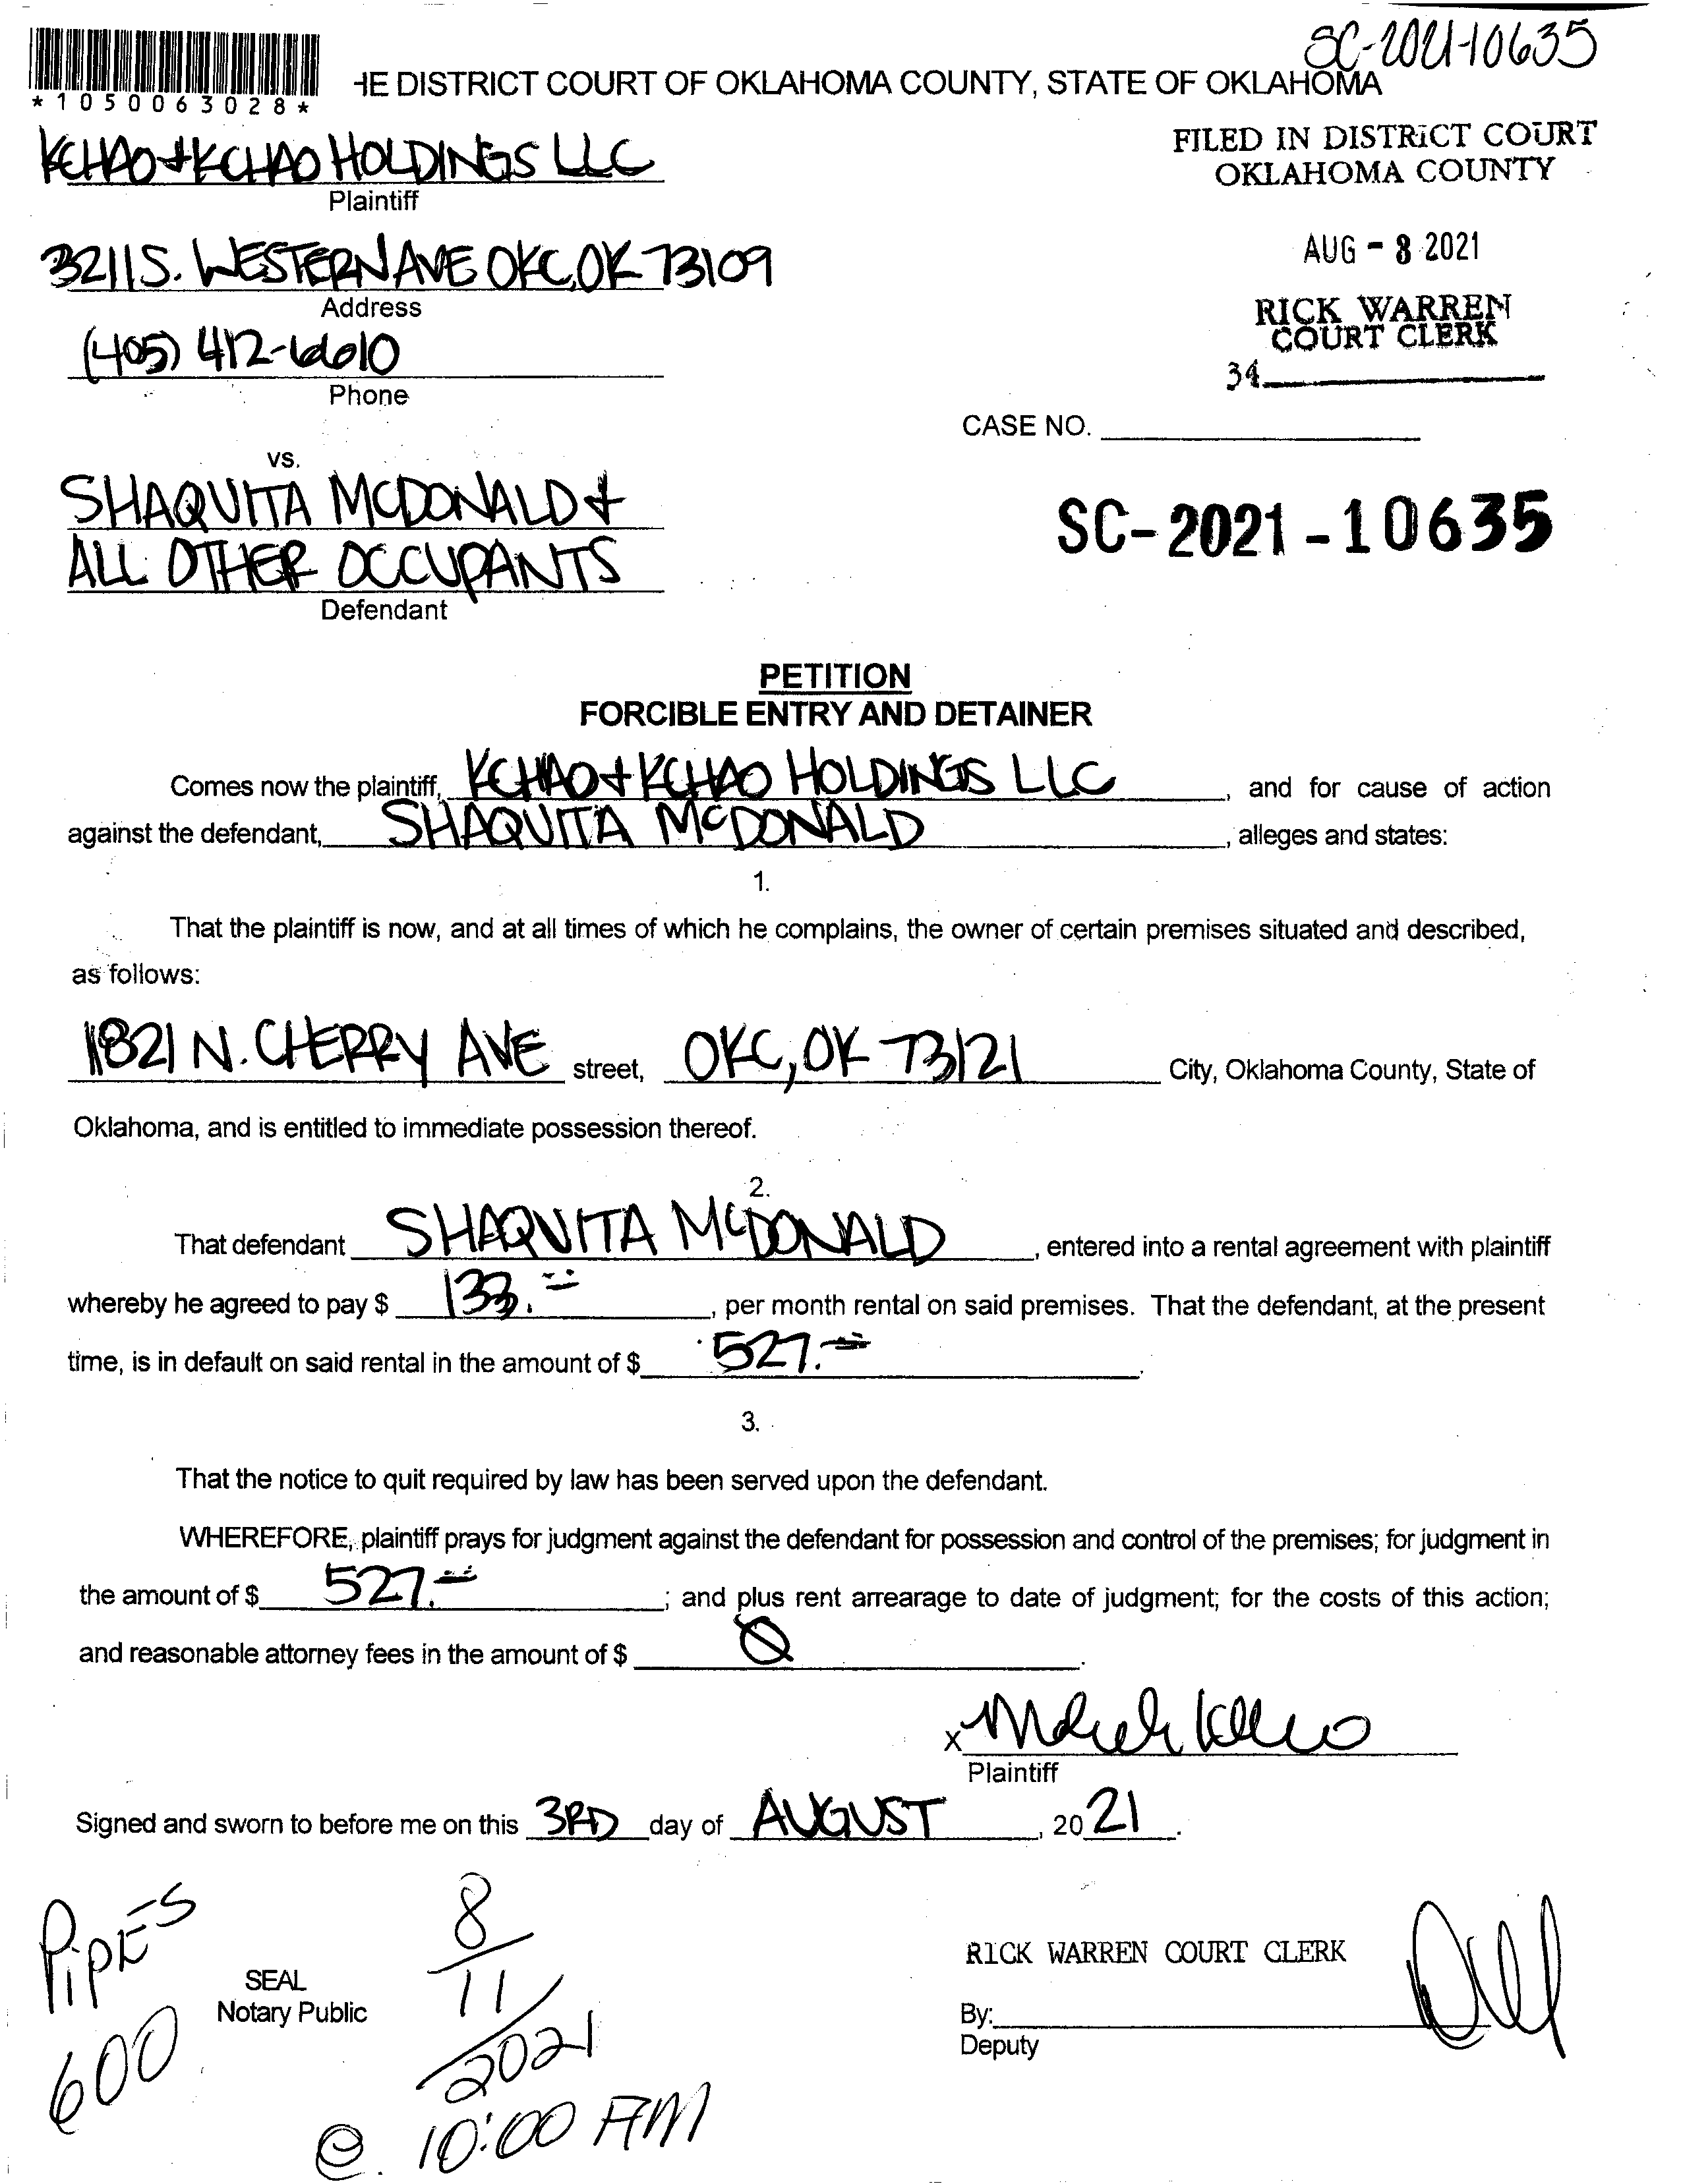 SC-2021-10635
*1050063028*
HE DISTRICT COURT OF OKLAHOMA COUNTY, STATE OF OKLAHOMA
KCHAO + KCHAO HOLDINGS LLC
Plaintiff
FILED IN DISTRICT COURT
OKLAHOMA COUNTY
3211 S. WESTERN AVE OKC, OK 73109
Address
AUG - 3 2021
RICK WARREN
COURT CLERK
34
(405) 412-6610
Phone
CASE NO.
vs.
SHAQUITA MCDONALD +
ALL OTHER OCCUPANTS
Defendant
SC-2021-10635
PETITION
FORCIBLE ENTRY AND DETAINER
Comes now the plaintiff, KCHAO + KCHAO HOLDINGS LLC, and for cause of action
against the defendant, SHAQUITA MCDONALD, alleges and states:
1.
That the plaintiff is now, and at all times of which he complains, the owner of certain premises situated and described,
as follows:
1821 N. CHERRY AVE street, OKC, OK 73121 City, Oklahoma County, State of
Oklahoma, and is entitled to immediate possession thereof.
2.
That defendant SHAQUITA MCDONALD, entered into a rental agreement with plaintiff
whereby he agreed to pay $ 133.--, per month rental on said premises. That the defendant, at the present
time, is in default on said rental in the amount of $ 527.--.
3.
That the notice to quit required by law has been served upon the defendant.
WHEREFORE, plaintiff prays for judgment against the defendant for possession and control of the premises; for judgment in
the amount of $ 527.--; and plus rent arrearage to date of judgment; for the costs of this action;
and reasonable attorney fees in the amount of $ Ø.
X
Plaintiff
Signed and sworn to before me on this 3RD day of AUGUST, 2021.
PIPES
600
SEAL
Notary Public
8/11/2021
@ 10:00 AM
RICK WARREN COURT CLERK
By:
Deputy